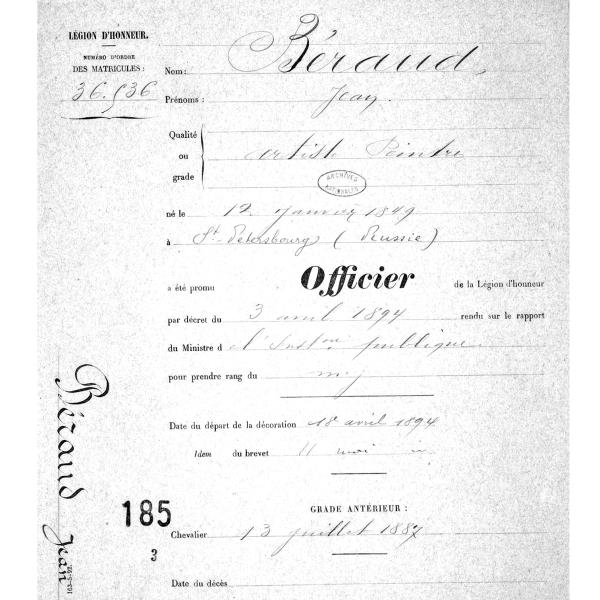 LÉGION D'HONNEUR.
NUMÉRO D'ORDRE
DES MATRICULES :
36.536
Nom : Béraud
Prénoms : Jean
Qualité
ou
grade
artiste Peintre
ARCHIVES
NATIONALES
né le 12 Janvier 1849
à St Petersbourg (Russie)
a été promu Officier de la Légion d'honneur
par décret du 3 avril 1894 rendu sur le rapport
du Ministre d e l'Inst.on publique
pour prendre rang du m. j
Date du départ de la décoration 18 avril 1894
Idem du brevet 11 mai
GRADE ANTÉRIEUR :
Chevalier 13 juillet 1887
Date du décès
Béraud Jean
185
3